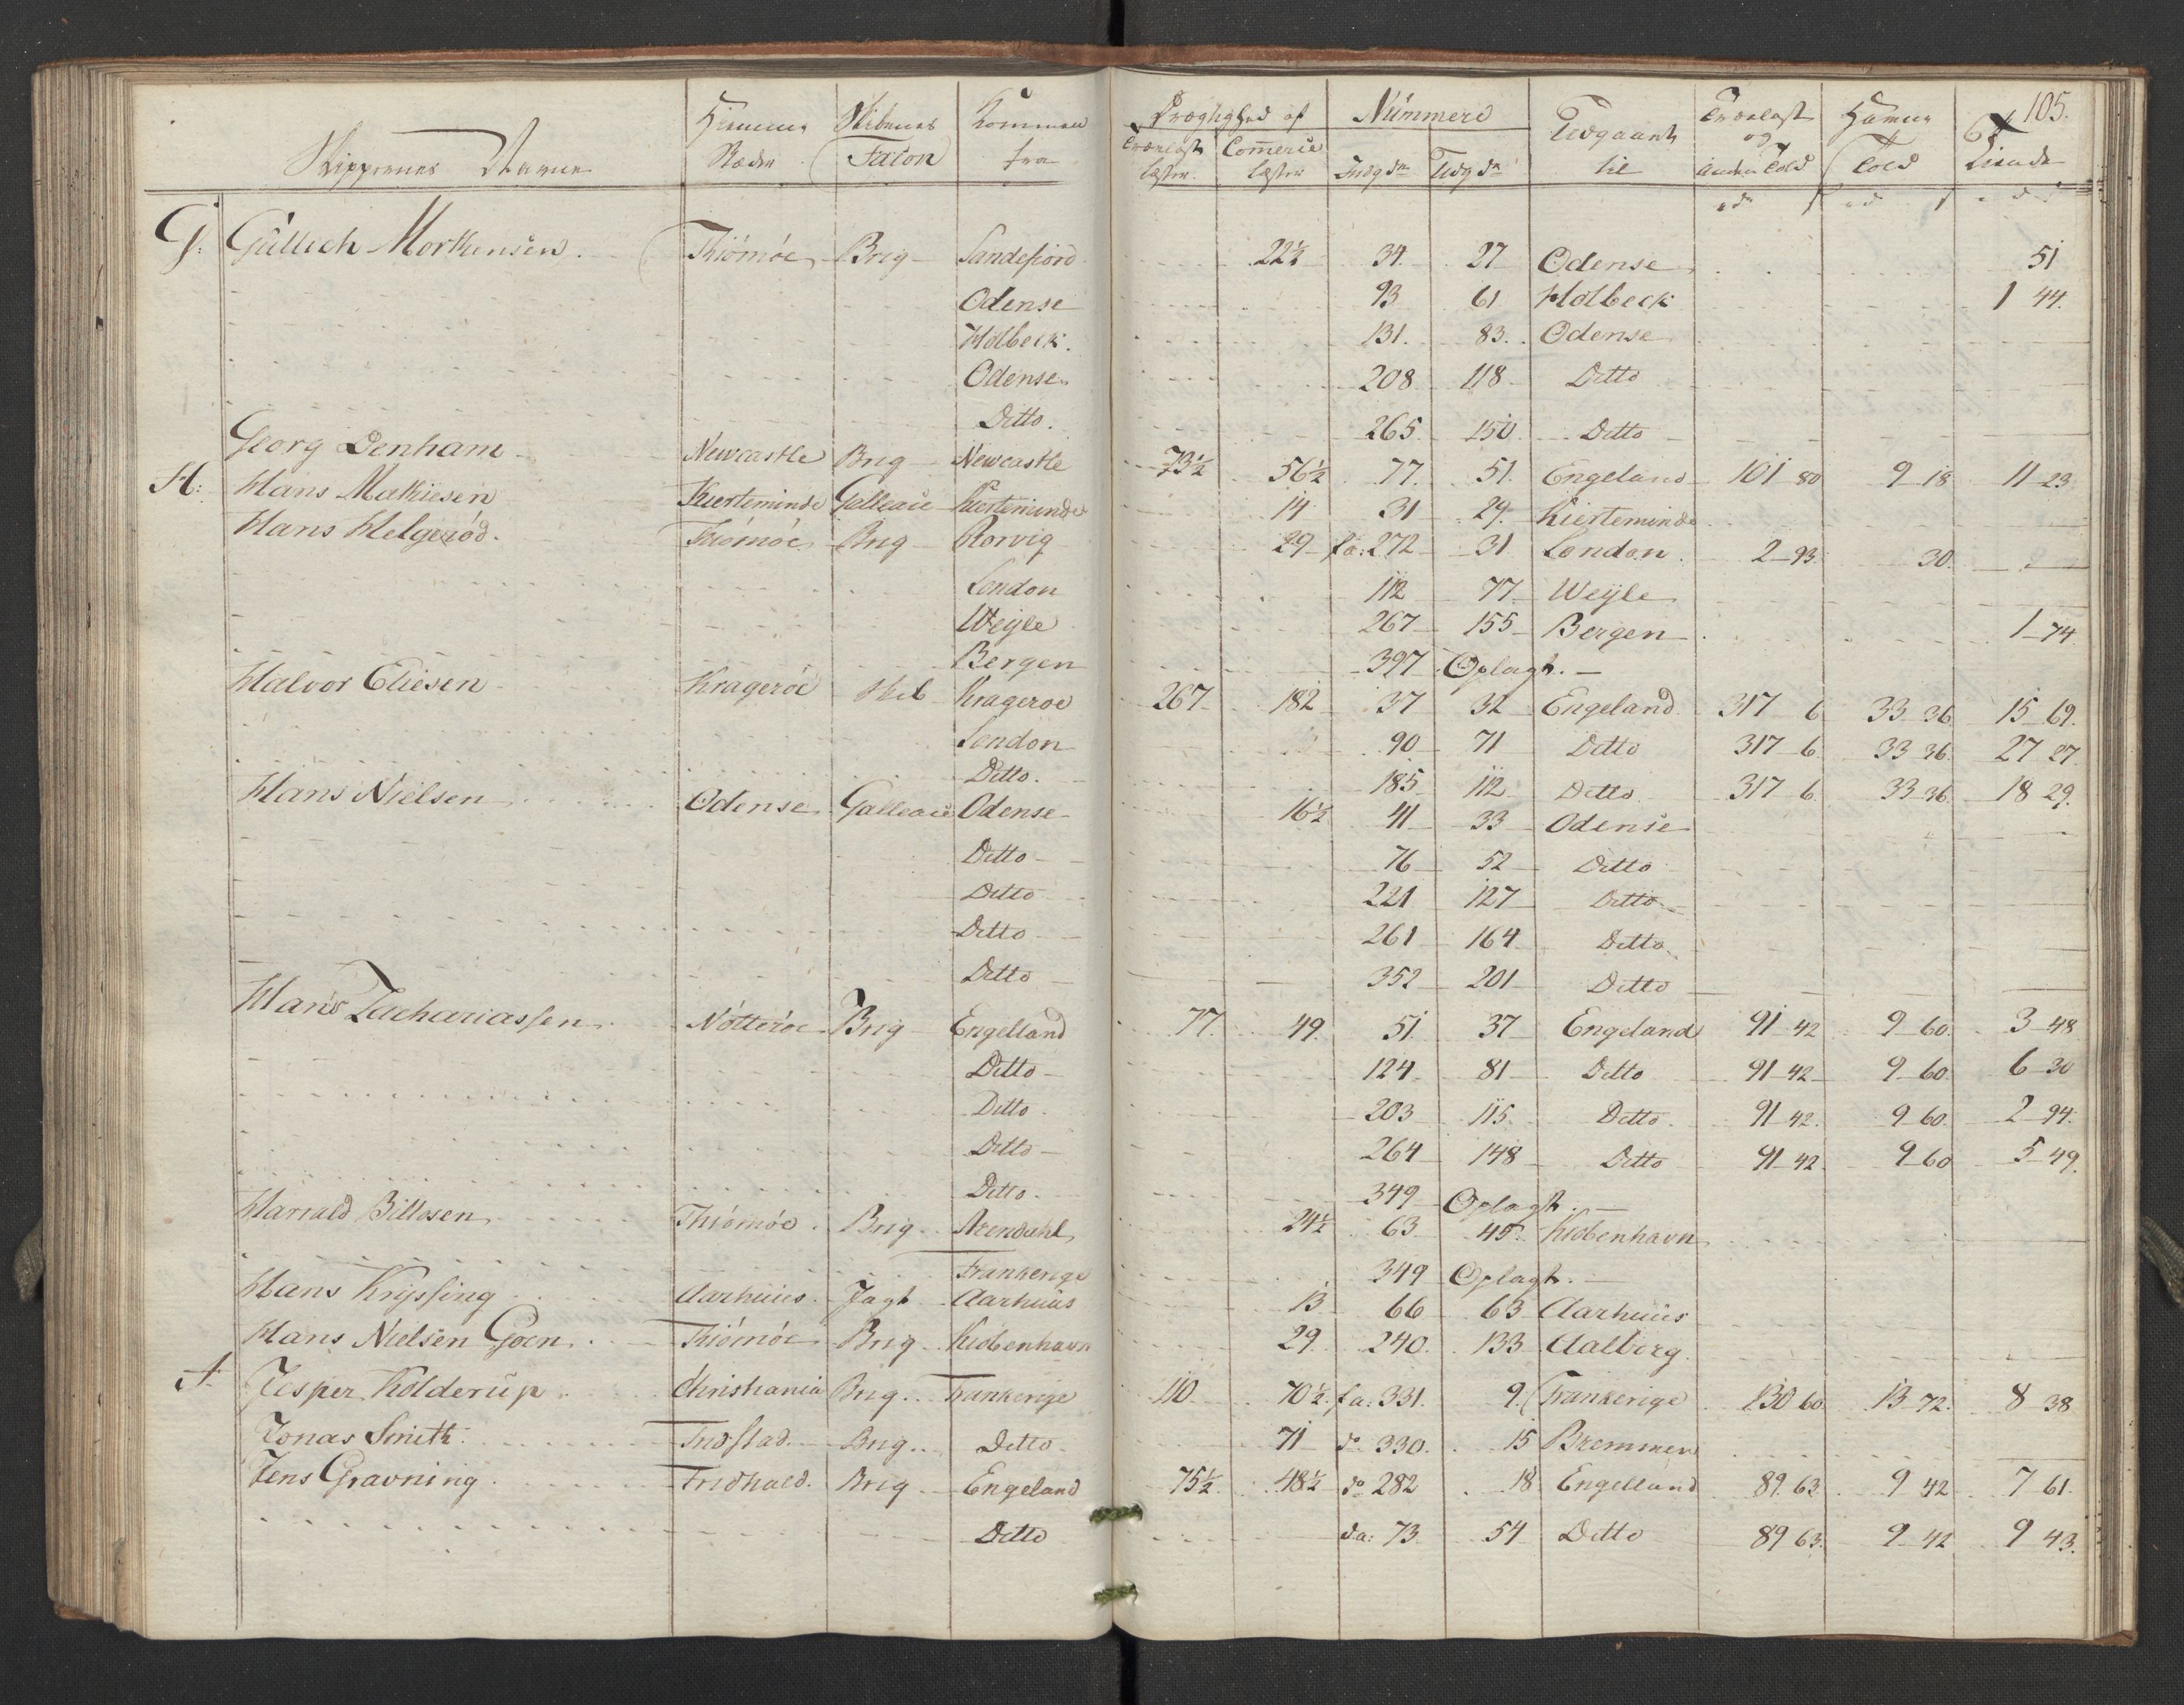 105.
Skippernes Navne | Hiemme Stædn | Skibenes Facon | Kommen fra | Drægtighed af Trælast læster | Commerce læster | Nummere Indgdn | Udgdn | Udgaaende til | Trælast og anden Told | Hamne Told | Tiende
G: Gullich Morthensen. | Thiömöe | Brig | Sandefiord | | 22½ | 34 | 27 | Odense | | | 51
Odense | 93 | 61 | Holbeck | | | 1 44.
Holbeck. | 131. | 83. | Odense
Odense | 208 | 118 | Ditto
Ditto. | 265. | 150. | Ditto
Georg Denham | Newcastle | Brig | Newcastle | 73½ | 56½ | 77. | 51. | Engeland | 101 80 | 9 18 | 11 23
H: Hans Mathiesen | Kierteminde | Galleace | Kierteminde | | 14 | 31 | 29. | Kierteminde
Hans Helgeröd. | Thiömöe | Brig | Rorvig | | 29 | fa: 272 | 31 | London. | 2 93. | 30.
London | 112 | 77 | Weyle
Weyle | 267 | 155 | Bergen | | | 1 74
Bergen | 397 | Oplagt.
Halvor Eliesen | Krageröe | Skib | Krageroe | 267 | 182 | 37 | 32 | Engeland | 317 6 | 33 36 | 15 69.
London | 90 | 71 | Ditto | 317 6 | 33 36. | 27 27.
Ditto. | 185. | 112 | Ditto | 317 6 | 33 36. | 18 29.
Hans Nielsen | Odense | Galleace | Odense | | 16½ | 41 | 33 | Odense
Ditto | 76 | 52 | Ditto
Ditto | 221 | 127 | Ditto
Ditto | 261 | 164 | Ditto
Ditto | 352 | 201 | Ditto
Hans Zachariassen | Nötteröe | Brig | Engelland | 77. | 49. | 51. | 37 | Engeland | 91 42 | 9 60. | 3 48
Ditto | 124 | 81 | Ditto | 91 42 | 9 60. | 6 30
Ditto. | 203 | 115. | Ditto. | 91 42. | 9 60. | 2 94.
Ditto | 264 | 148 | Ditto | 91 42. | 9 60 | 5 49.
Ditto. | 349 | Oplagt.
Harrald Billosen | Thiömöe. | Brig | Arendahl | | 24½ | 63 | 45. | Kiöbenhavn
Frankerige | 349 | Oplagt.
Hans Kryssing | Aarhuus. | Jagt | Aarhuus | | 13 | 66 | 63 | Aarhuus
Hans Nielsen Goen. | Thiömöe | Brig | Kiöbenhavn | | 29. | 240. | 133 | Aalborg.
J. Jesper Kolderup. | Christiania | Brig. | Frankerige | 110. | 70½ | fa: 331. | 9. | Frankerige | 130 60 | 13 72. | 8 38
Jonas Smith. | Fridstad. | Brig. | Ditto | | 71 | do 330. | 15 | Bremmen
Jens Gravning. | Fridhald. | Brig. | Engeland | 75½. | 48½ | do 282 | 18 | Engelland | 89. 63 | 9 42 | 7 61.
Ditto | da: 73. | 54 | Ditto | 89 63. | 9 42 | 9 43.